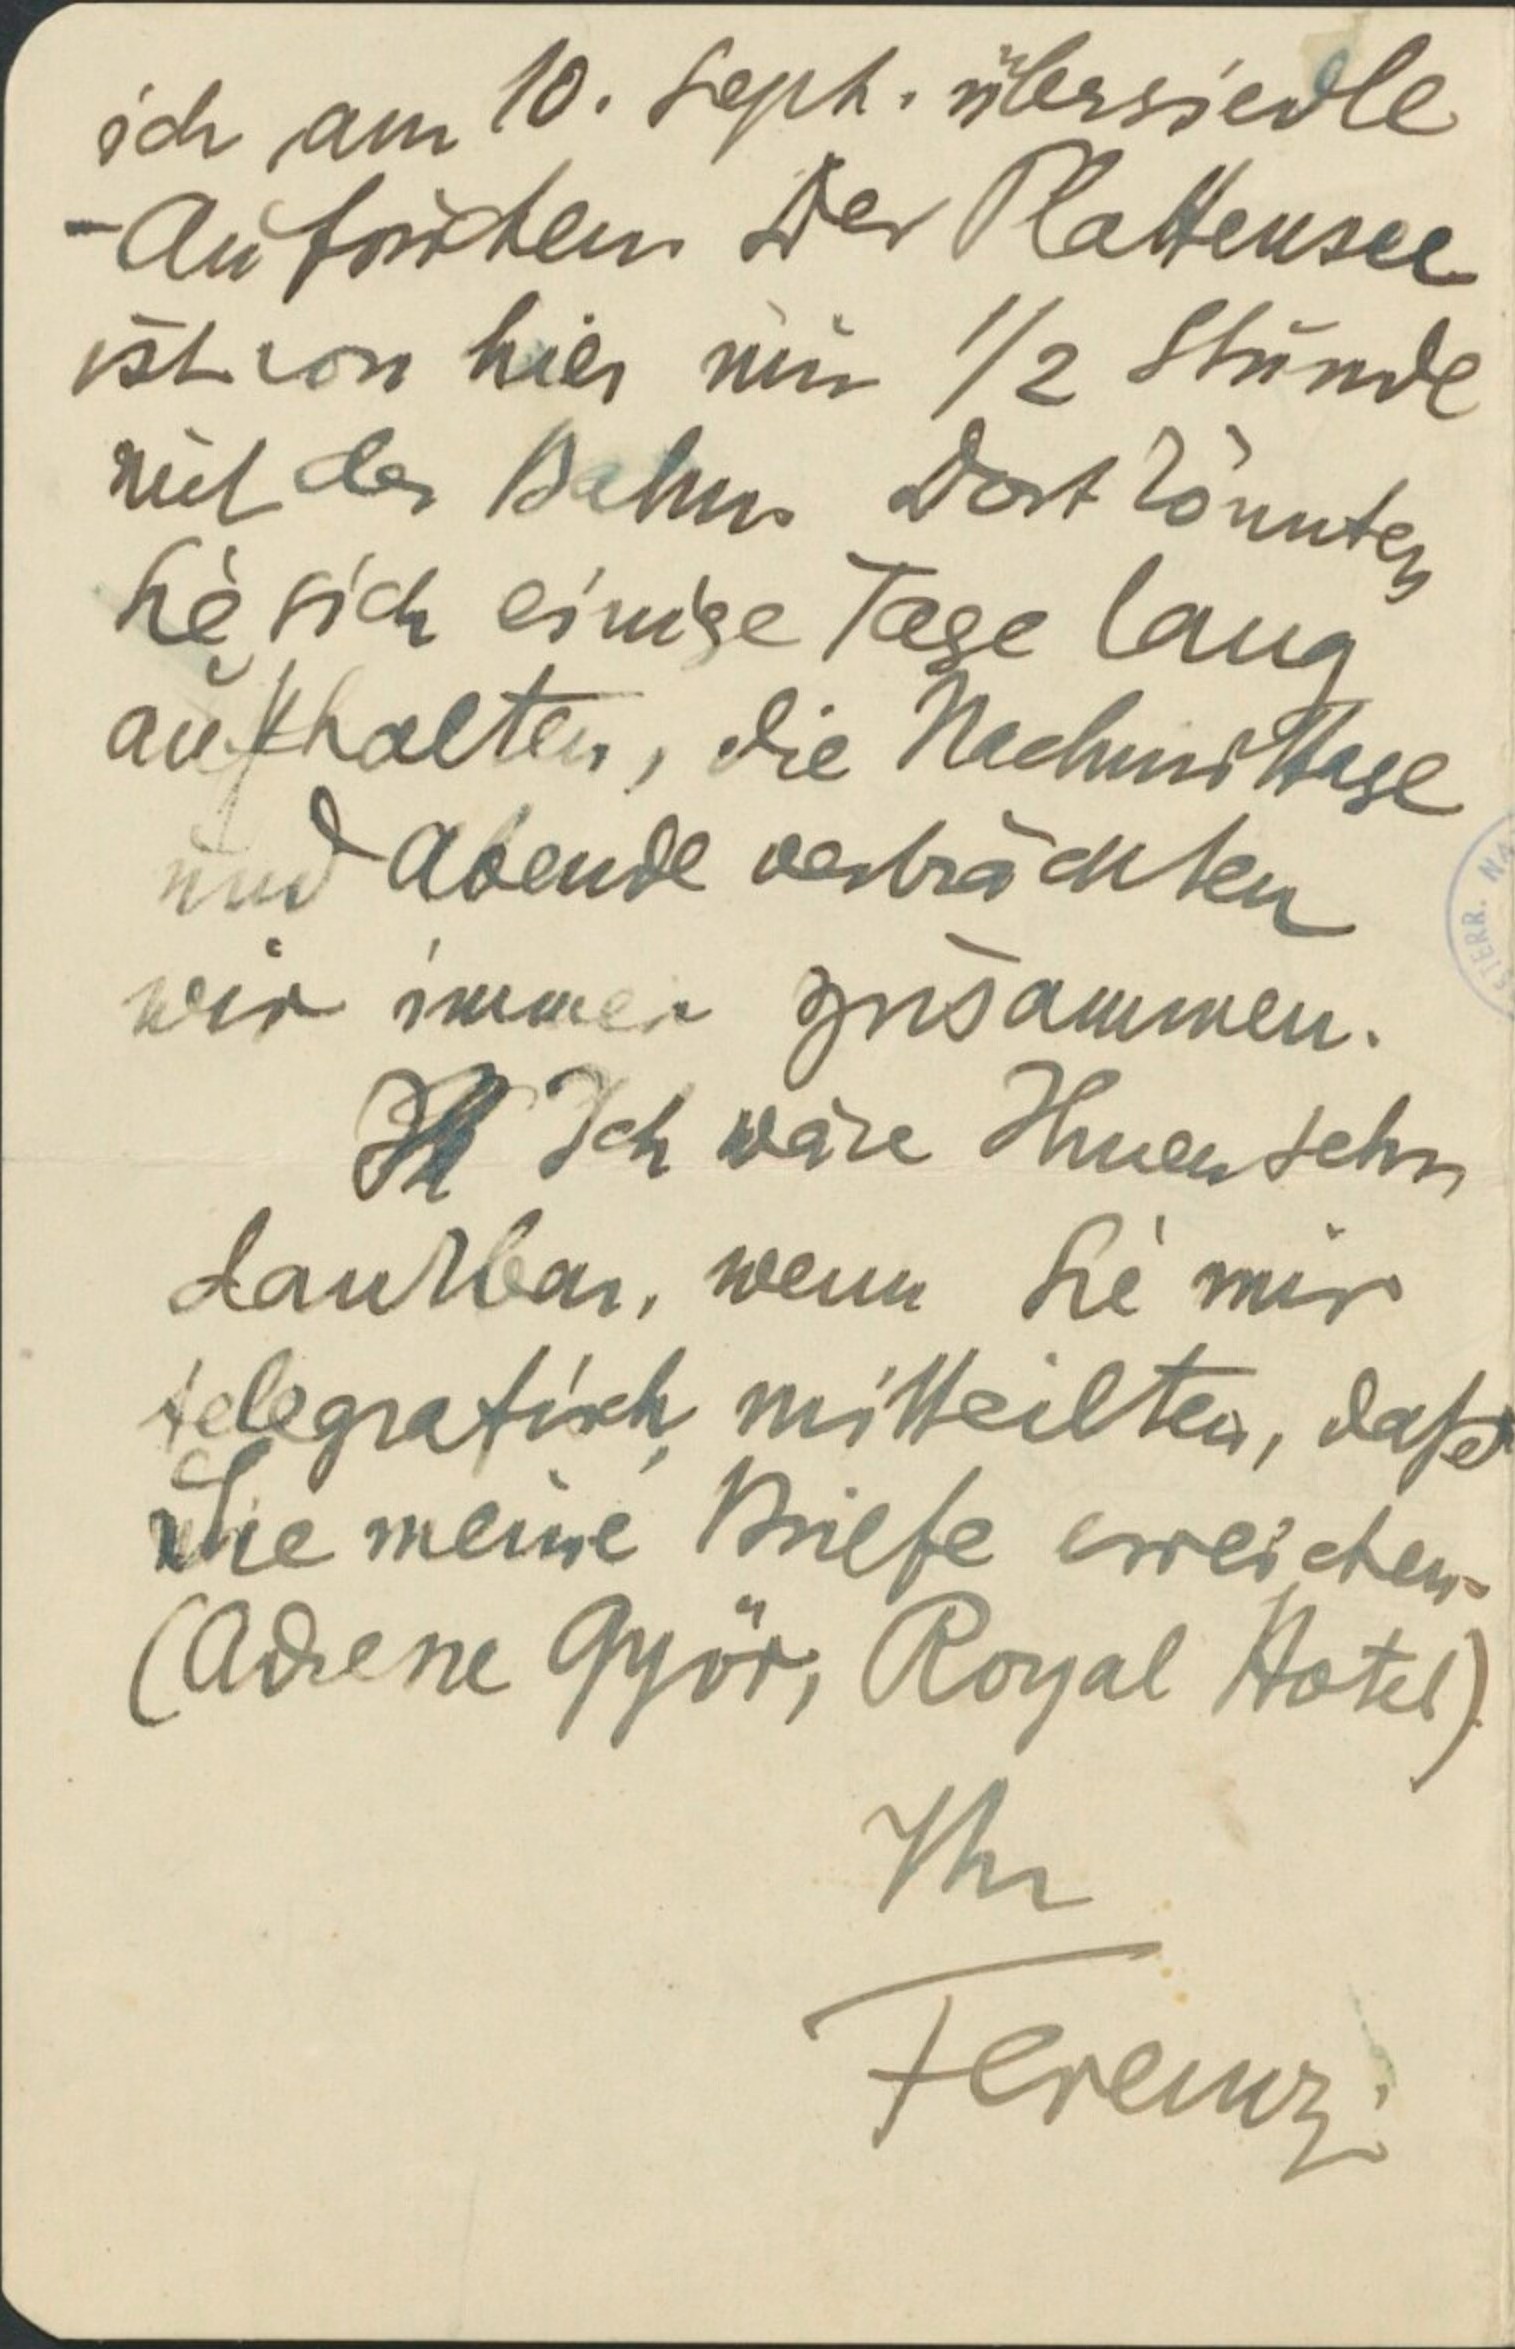 ich am 10. Sept. übersiedle
– aufsuchen. Der Plattensee
ist von hier nur 1/2 Stunde
mit der Bahn. Dort könnten
Sie sich einige Tage lang
aufhalten, die Nachmittage
und Abende verbrächten
wir immer zusammen.
Ich wäre Ihnen sehr
dankbar, wenn Sie mir
telegrafisch mitteilten, daß
Sie meine Briefe erreichen.
(Adresse Györ, Royal Hotel)
Ihr
Ferenczi
STERR. NA